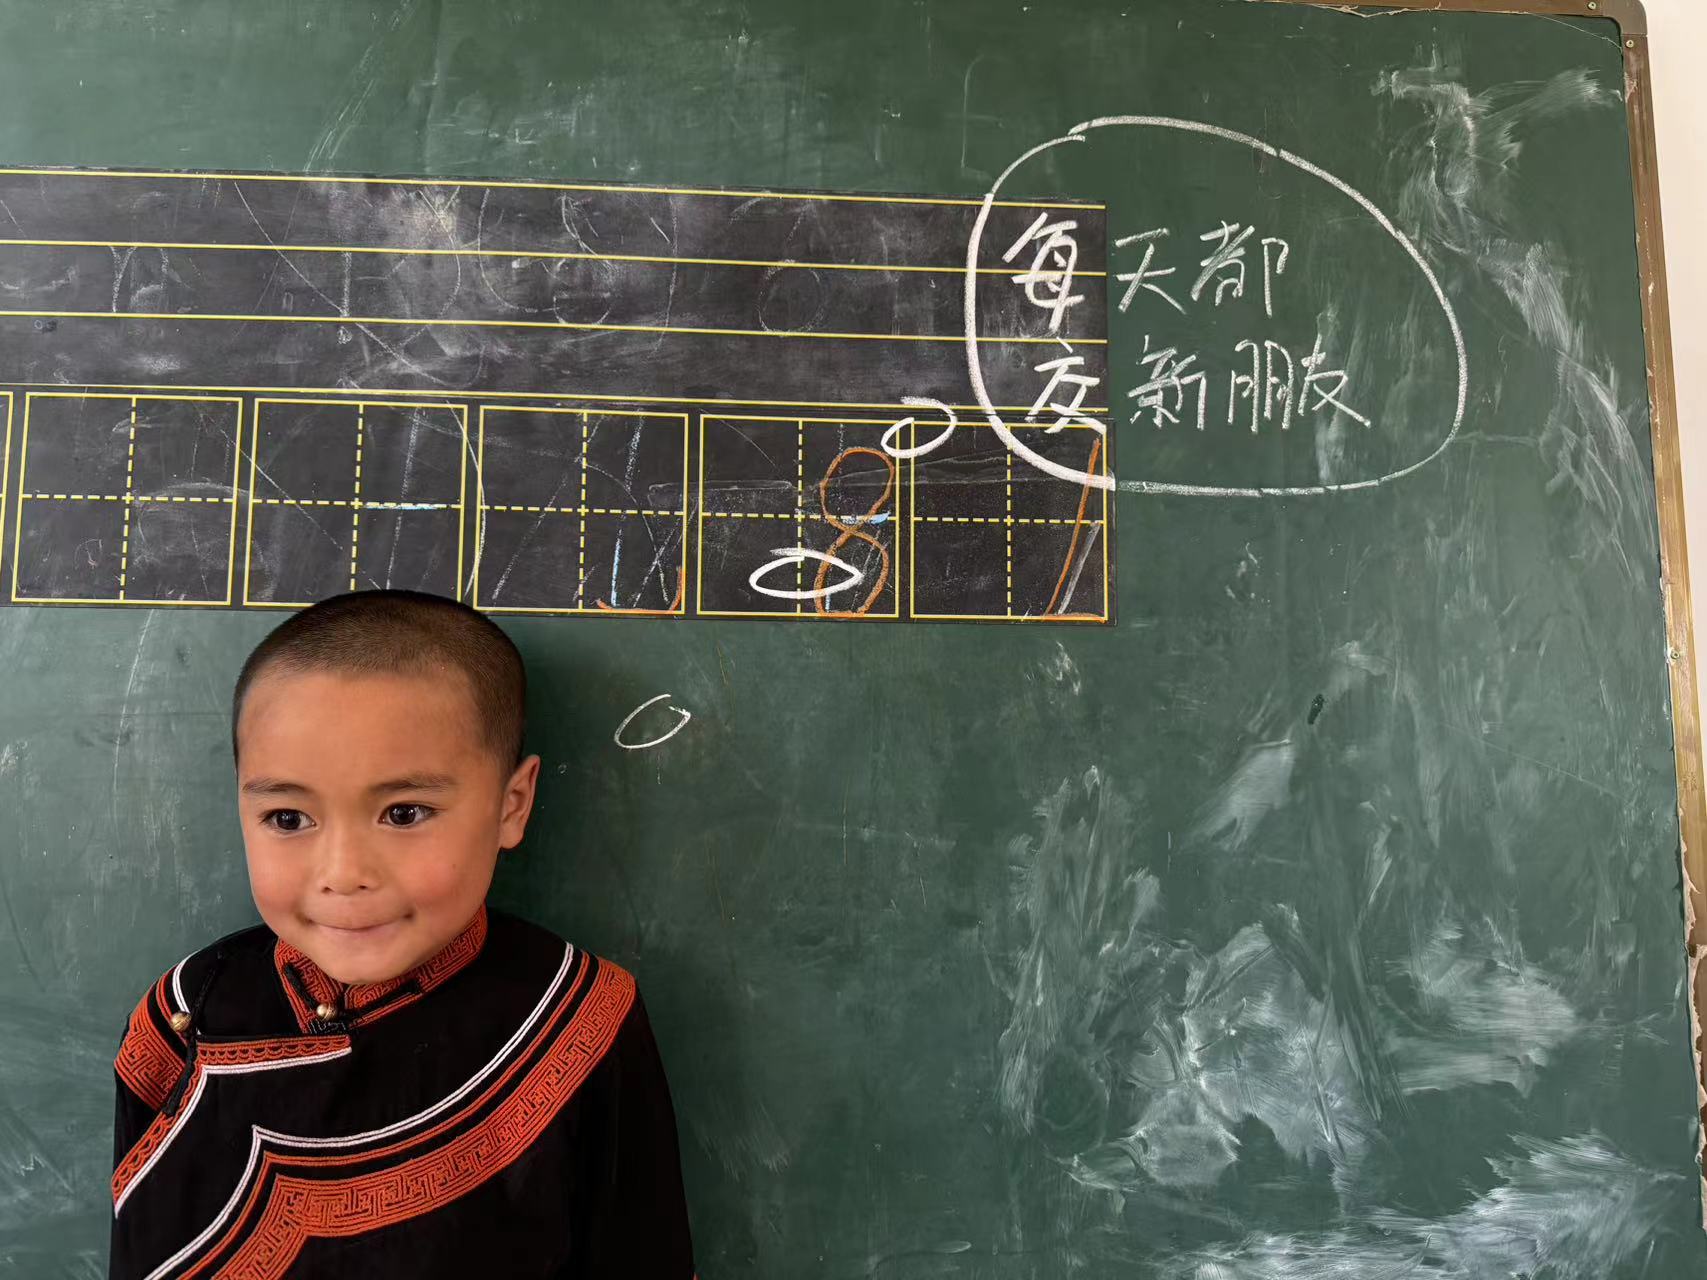 每天都
交新朋友
8 1